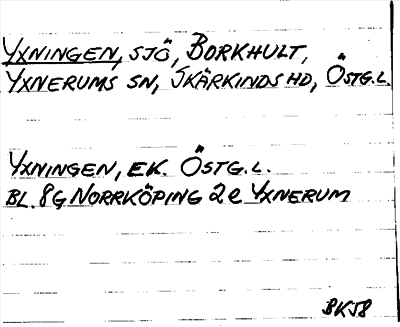 YXNINGEN, SJÖ, BORKHULT,
YXNERUMS SN, SKÄRKINDS HD, ÖSTG.L.
YXNINGEN, EK. ÖSTG.L.
BL. 8G NORRKÖPING 2e YXNERUM
BK58